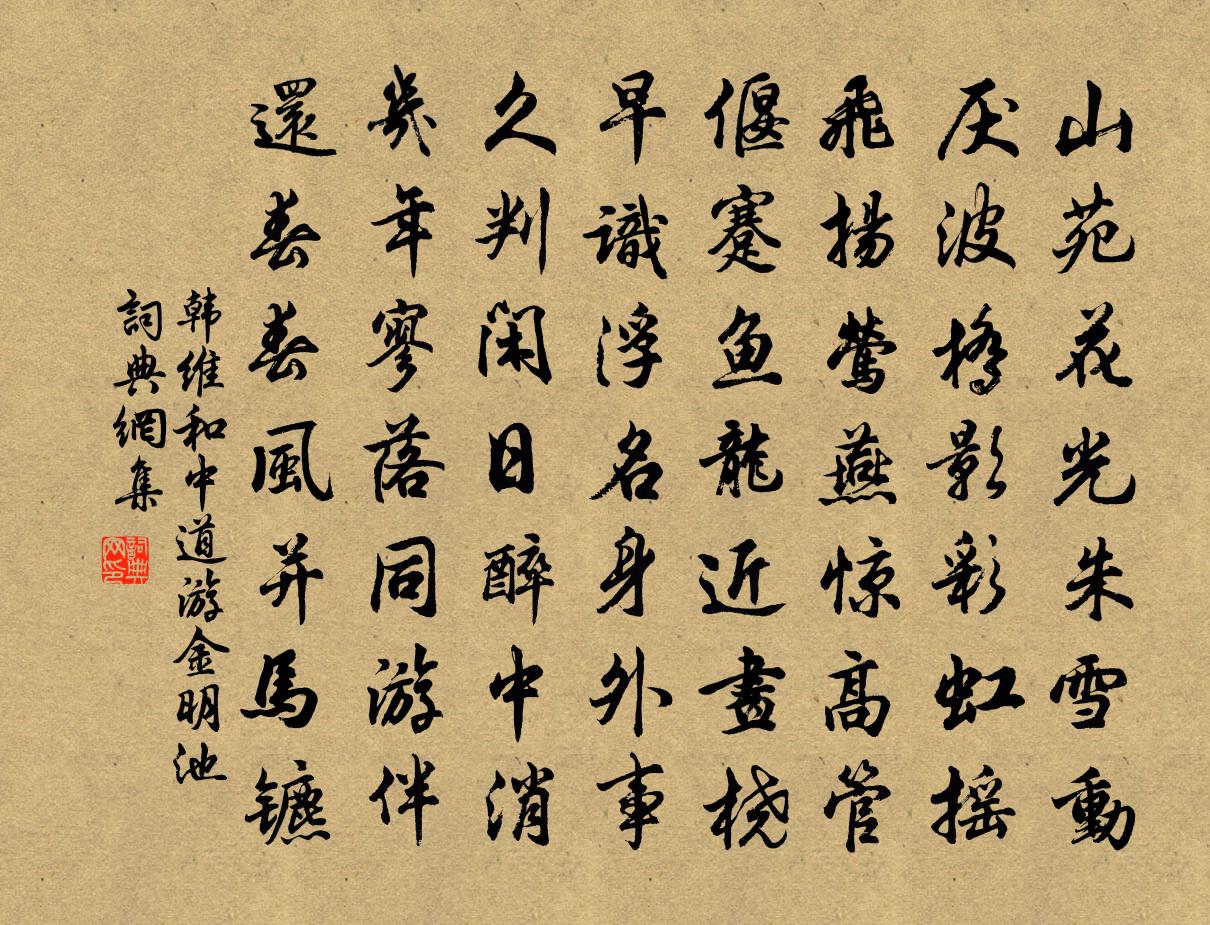 山苑花光朱雪動
灰波橋影彩虹摇
飛揚鶯燕惊高管
偃蹇鱼龍近畫橈
早識浮名身外事
久判闲日醉中消
幾年寥落同游伴
還春春風并馬镳
韩維和中道游金明池
詞典網集
詞典網印